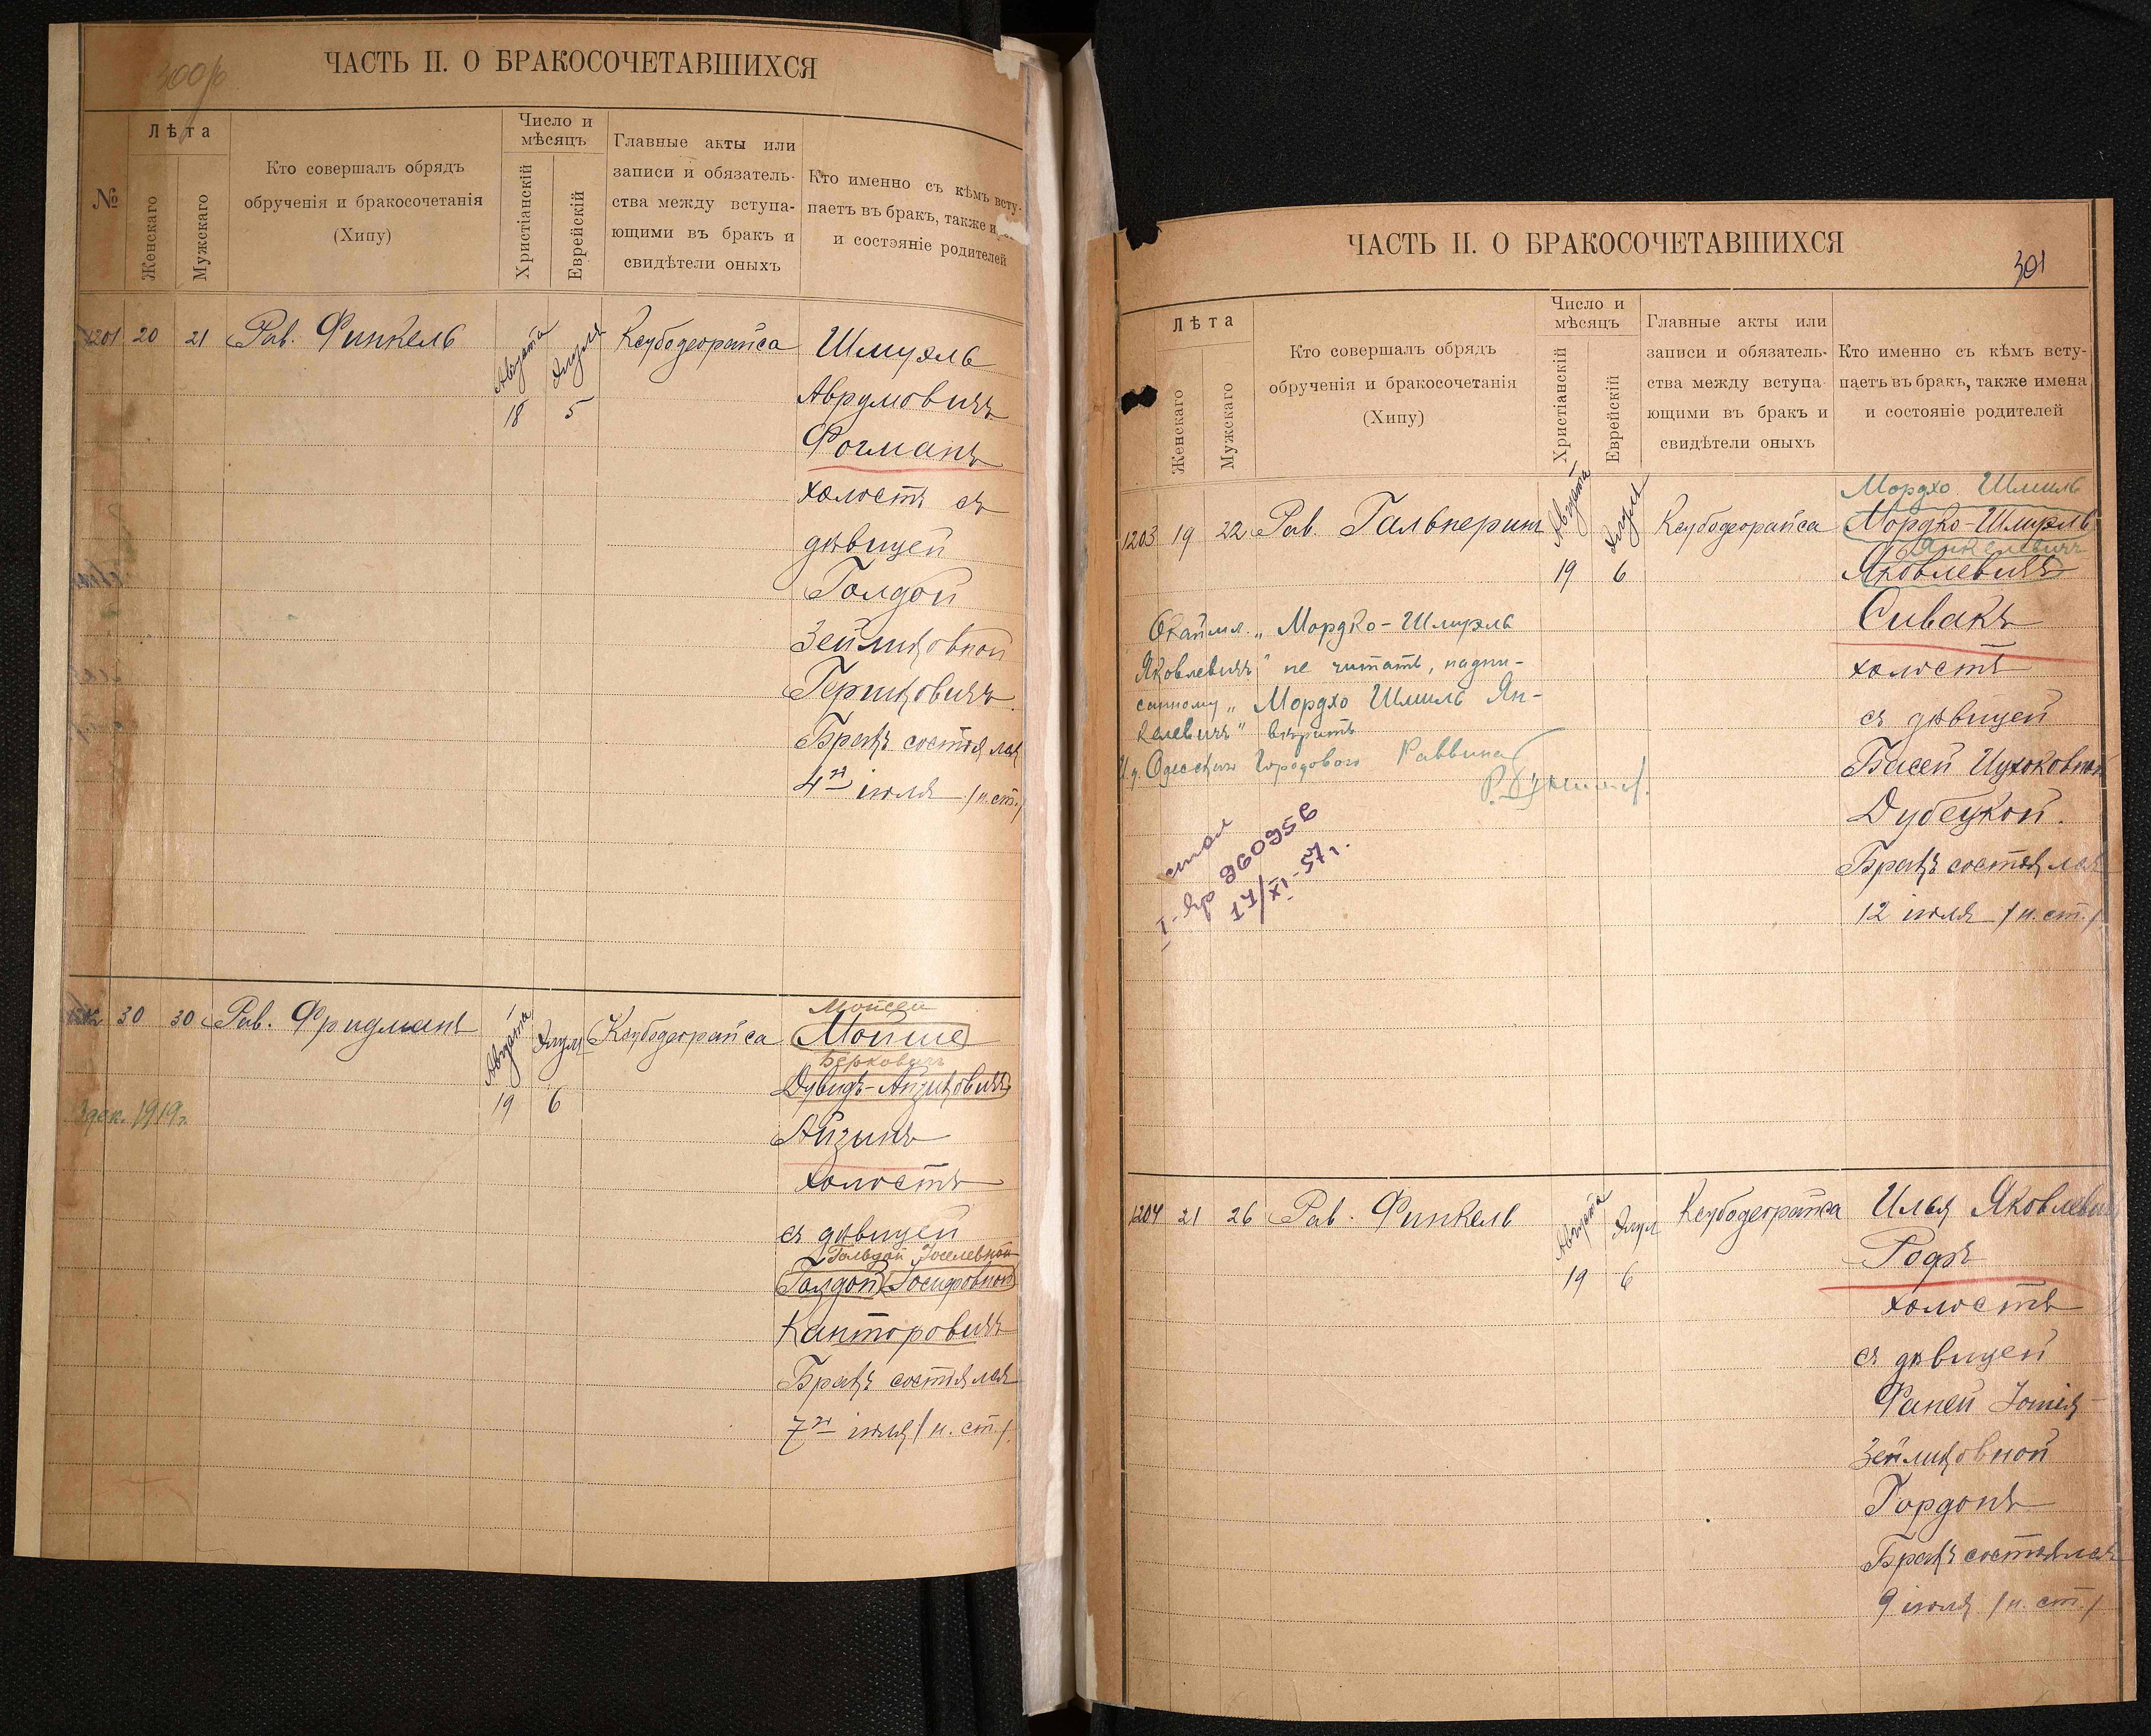 ЧАСТЬ II. О БРАКОСОЧЕТАВШИХСЯ
№
Лѣта
Женскаго
Мужскаго
Кто совершалъ обрядъ
обрученія и бракосочетанія
(Хипу)
Число и
мѣсяцъ
Христіанскій
Еврейскій
Главные акты или
записи и обязатель-
ства между вступа-
ющими въ бракъ и
свидѣтели оныхъ
Кто именно съ кѣмъ всту-
паетъ въ бракъ, также
и состояніе родителей
1201 20 21 Рав. Финкель
Августа 18
Элуля 5
Ксубодеорайса
Шмуэль
Аврумовичъ
Фогманъ
холостъ съ
дѣвицей
Голдой
Зейликовной
Гершковичъ
Бракъ состоялся
4го іюля (н. ст.)
30 30 Рав. Фридманъ
Августа 19
Элуля 6
Ксубодеорайса
3 дек. 1919 г.
Мойсей
Мойше
Берковичъ
Дувидъ-Айзиковичъ
Айзинъ
холостъ
съ дѣвицей
Гольдой Іоселевной
Голдой Іосифовной
Канторовичъ
Бракъ состоялся
7го іюля (н. ст.)
ЧАСТЬ II. О БРАКОСОЧЕТАВШИХСЯ
301
Лѣта
Женскаго
Мужскаго
Кто совершалъ обрядъ
обрученія и бракосочетанія
(Хипу)
Число и
мѣсяцъ
Христіанскій
Еврейскій
Главные акты или
записи и обязатель-
ства между вступа
ющими въ бракъ и
свидѣтели оныхъ
Кто именно съ кѣмъ всту-
паетъ въ бракъ, также имена
и состояніе родителей
1203 19 22 Рав. Гальперинъ
Августа 19
Элуля 6
Ксубодеорайса
Мордхо Шмиль
Мордко-Шмуэль
Янкелевичъ
Яковлевичъ
Сивакъ
холостъ
съ дѣвицей
Басей Ицхоковной
Дубецкой.
Бракъ состоялся
12 іюля (н. ст.)
Окаймл. „Мордко-Шмуэль
Яковлевичъ" не читать, надпи-
санному „Мордхо Шмиль Ян-
келевичъ" вѣрить
И. д. Одесскаго Городового Раввина
17/XI-57 г.
1204 21 26 Рав. Финкель
Августа 19
Элул 6
Ксубодеорайса
Илья Яковлевичъ
Рофъ
холостъ
съ дѣвицей
Фаней
Зейликовной
Гордонъ
Бракъ состоялся
9 іюля (н. ст.)